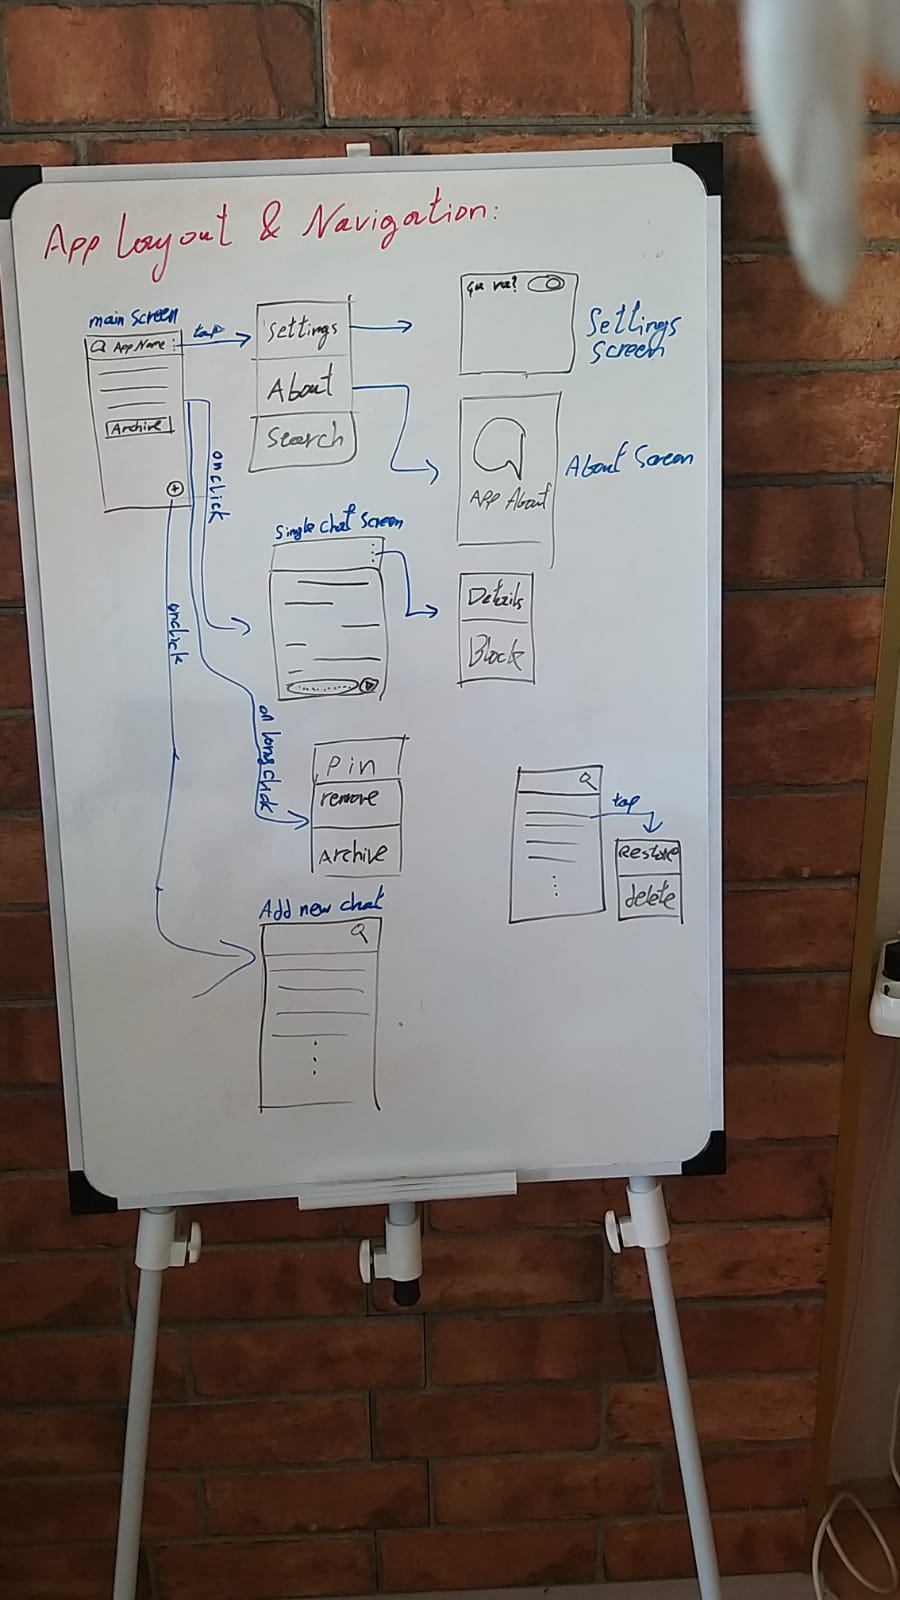 App Layout & Navigation:
main screen
App Name
tap
Archive
Settings
About
Search
Settings
screen
App About
About Screen
onclick
Single chat screen
Details
Block
onclick
on long click
Pin
remove
Archive
tap
Restore
delete
Add new chat